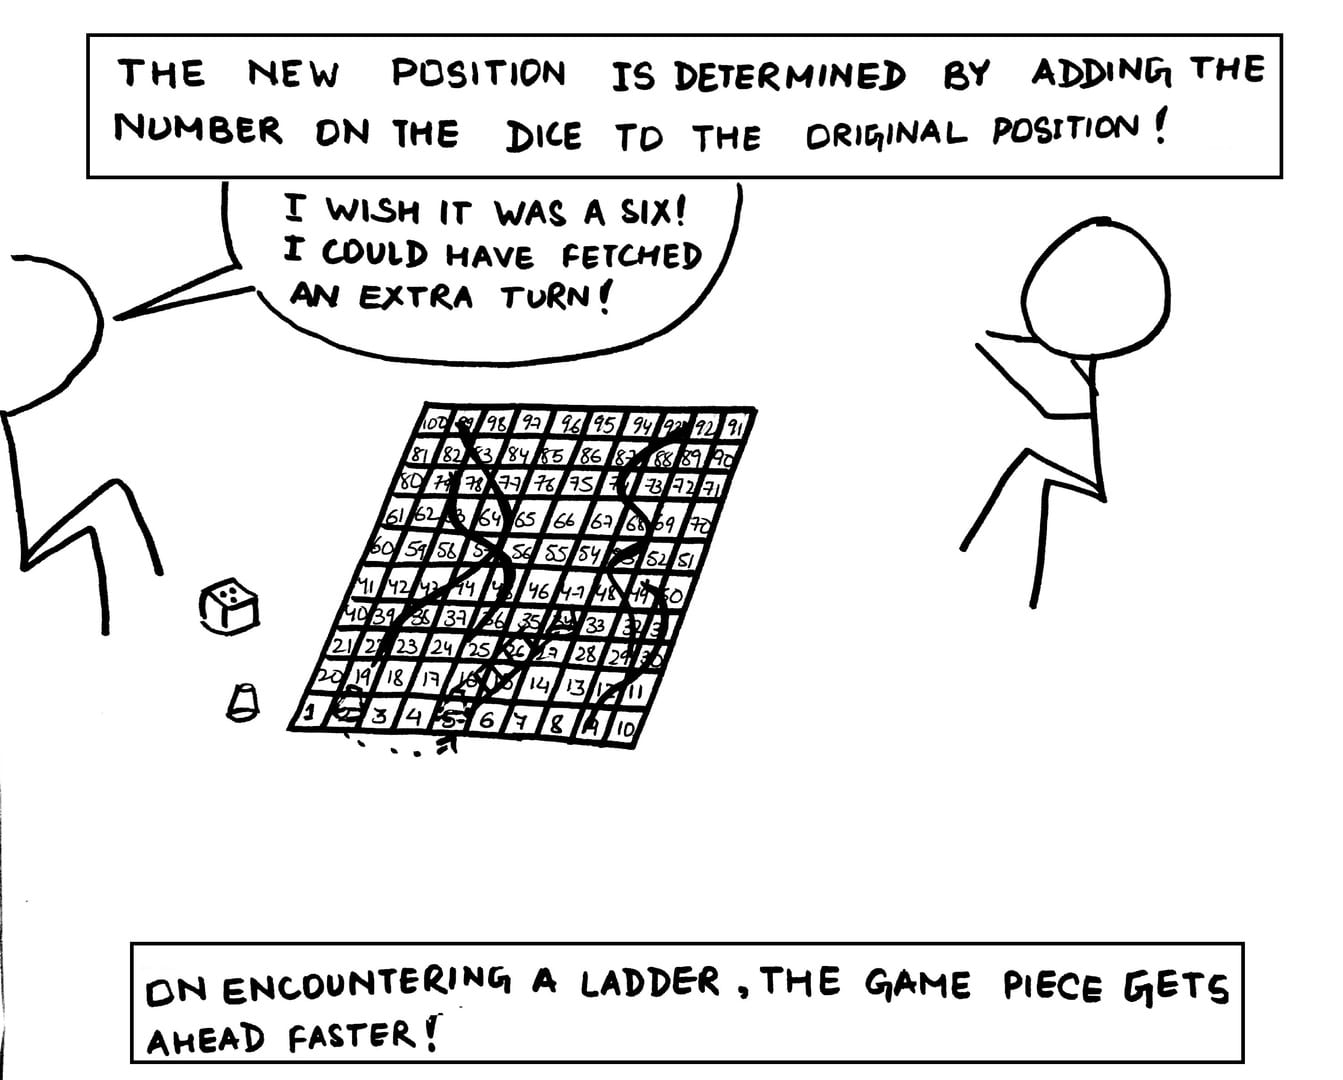 THE NEW POSITION IS DETERMINED BY ADDING THE
NUMBER ON THE DICE TO THE ORIGINAL POSITION!
I WISH IT WAS A SIX!
I COULD HAVE FETCHED
AN EXTRA TURN!
100 99 98 97 96 95 94 93 92 91
81 82 83 84 85 86 87 88 89 90
80 79 78 77 76 75 73 72 71
61 62 63 64 65 66 67 68 69 70
60 59 58 57 56 55 54 53 52 51
41 42 43 44 45 46 47 48 49 50
40 39 38 37 36 35 34 33 32 31
21 22 23 24 25 26 27 28 29 30
20 19 18 17 16 15 14 13 12 11
1 2 3 4 5 6 7 8 9 10
ON ENCOUNTERING A LADDER, THE GAME PIECE GETS
AHEAD FASTER!